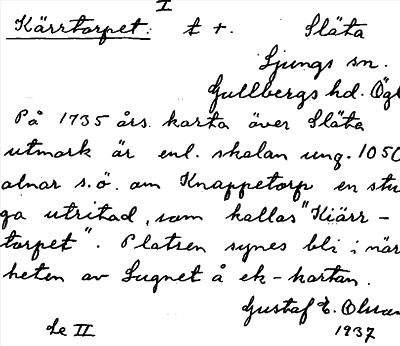 I
Kärrtorpet: t +. Släta
Ljungs sn.
Gullbergs hd. Ögl
På 1735 års. karta över Släta
utmark är enl. skalan ung. 1050
alnar s.ö. om Knappetorp en stu
ga utritad, som kallas "Kiärr-
torpet". Platsen synes bli i när
heten av Lugnet å ek-kartan.
Gustaf E. Olsson
Se II 1937